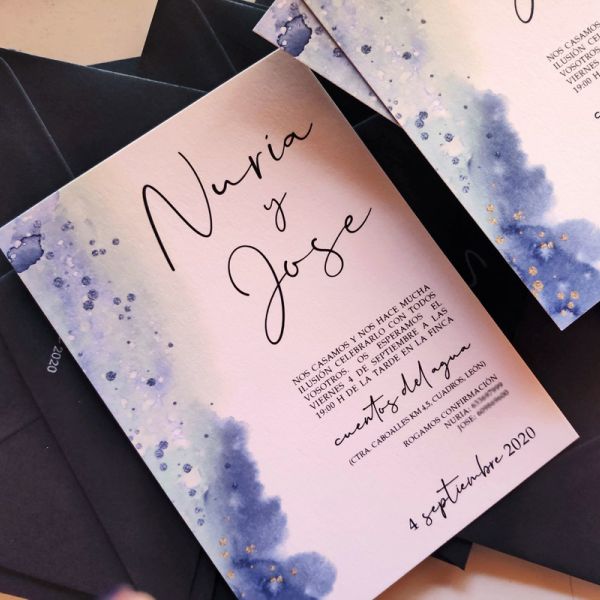 Nuria
y
Jose
NOS CASAMOS Y NOS HACE MUCHA
ILUSIÓN CELEBRARLO CON TODOS
VOSOTROS. OS ESPERAMOS EL
VIERNES 4 DE SEPTIEMBRE A LAS
19:00 H DE LA TARDE EN LA FINCA
cuentos del agua
(CTRA. CABOALLES KM 4,5, CUADROS, LEÓN)
ROGAMOS CONFIRMACIÓN
NURIA:
JOSE:
4 septiembre 2020
NOS CASAMOS
ILUSIÓN CELE
VOSOTROS
VIERNES
19:00 H
2020